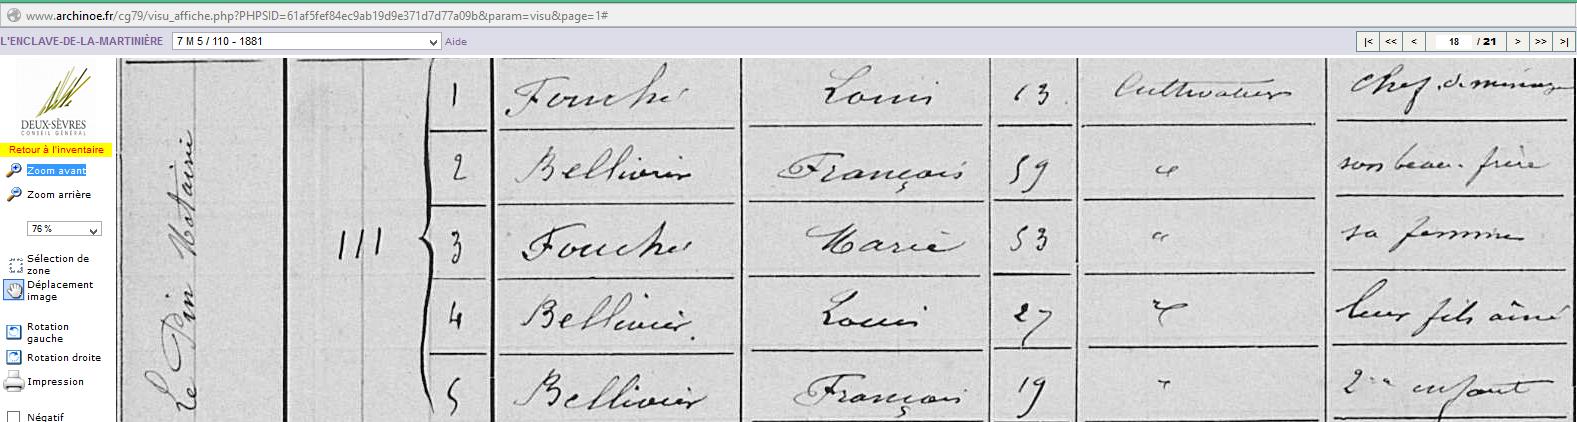 www.archinoe.fr/cg79/visu_affiche.php?PHPSID=61af5fef84ec9ab19d9e371d7d77a09b&param=visu&page=1#
L'ENCLAVE-DE-LA-MARTINIÈRE 7 M 5 / 110 - 1881 Aide |< << < 18 / 21 > >> >|
DEUX-SÈVRES
CONSEIL GÉNÉRAL
Retour à l'inventaire
Zoom avant
Zoom arrière
76 %
Sélection de zone
Déplacement image
Rotation gauche
Rotation droite
Impression
Négatif
Le Pin Notairie
111
1 Fouché Louis 63 Cultivateurs Chef de ménage
2 Bellivier François 59 " son beau-frère
3 Fouché Marie 53 " sa femme
4 Bellivier Louis 27 " leur fils aîné
5 Bellivier François 19 " 2me enfant